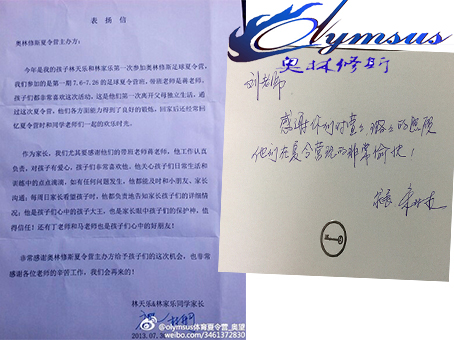 表 扬 信
奥林修斯夏令营主办方:
今年是我的孩子林天乐和林家乐第一次参加奥林修斯足球夏令营,
我们参加的是第一期7.6-7.26的足球夏令营班,带班老师是蒋老师,
孩子们都非常喜欢这次活动,这是他们第一次离开父母独立生活,通
过这次夏令营,他们各方面能力得到了良好的锻炼,回家后还经常回
忆夏令营时和同学老师们一起的欢乐时光。
作为家长,我们尤其要感谢他们的带班老师蒋老师,他工作认真
负责,对孩子有爱心,孩子们都非常喜欢他。他关心孩子们日常生活和
训练中的点点滴滴,如有任何问题发生,他都能及时和小朋友、家长
沟通;每周日家长看望孩子时,他都负责地告知家长孩子们的详细情
况;他是孩子们心中的孩子大王,也是家长眼中孩子们的保护神,值
得信任!还有丁老师和马老师也是孩子们心中的好朋友!
非常感谢奥林修斯夏令营主办方给予孩子们的这次机会,也非常
感谢各位老师的辛苦工作,我们会再来的!
林天乐&林家乐同学家长
2013.07.
@olymsus体育夏令营_奥望
weibo.com/3461372830
Olymsus
奥林修斯
刘老师:
感谢你们对营
他们在夏令营玩的非常愉快!